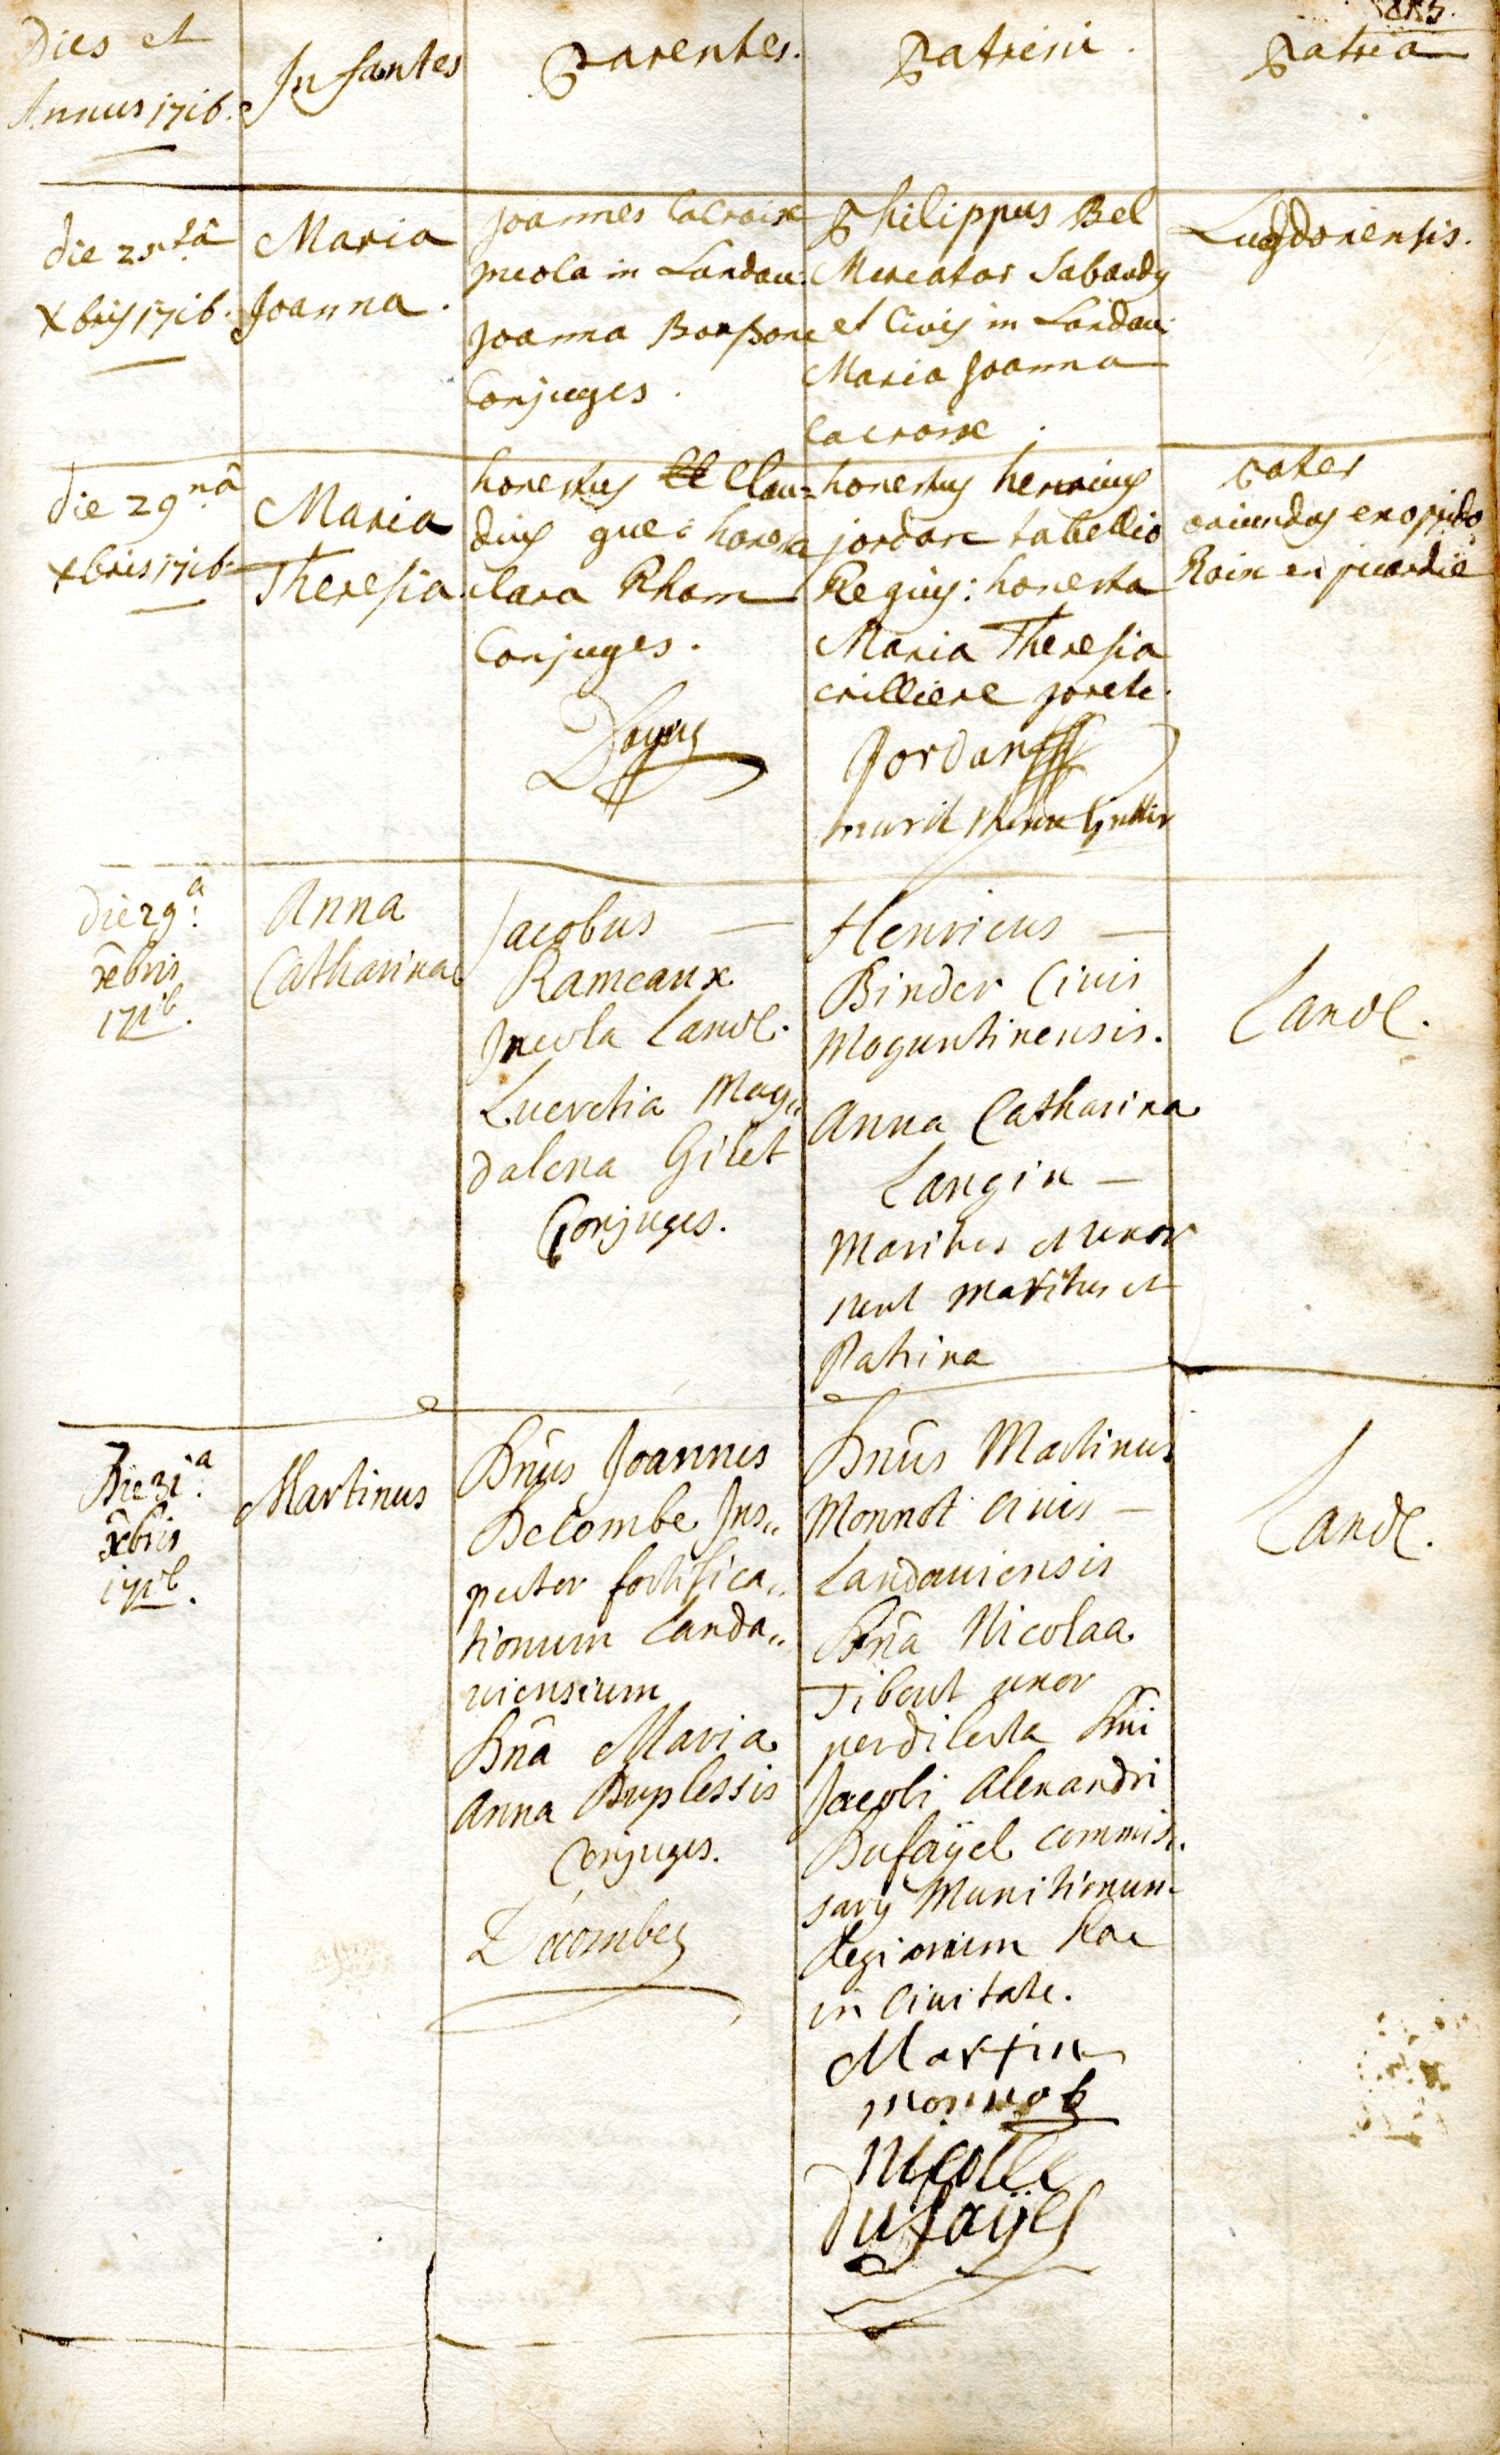 Dies et
Annus 1716.
Infantes
Parentes.
Patrini.
Patria
die 25.tâ
Xbris 1716.
Maria
Joanna.
Joannes lacroix
incola in Landau.
Joanna
Conjuges.
Philippus Bel
Mercator Sabaudy
et Civis in Landau.
Maria Joanna
lacroix.
Lugdonensis.
die 29nâ
xbris 1716.
Maria
Theresia.
honestus Clau=
dius gue: honesta
clara Rham
Conjuges.
honestus henricus
jordan tabellio
Regius: honesta
Maria Theresia
crilliere
Jordan
pater
oriundus ex oppido
Roix en picardie
die 29.a
xbris
1716.
Anna
Catharina
Jacobus —
Rameaux
Incola Land.
Lucretia Mag„
dalena Gilet
Conjuges.
Henricus —
Binder Civis
Moguntinensis.
Anna Catharina
Langin —
Maritus et uxor
sunt Maritus et
Patrina
Land.
Die 31.a
xbris
1716.
Martinus
Dnus Joannes
Decombe Ins„
pector fortifica„
tionum Landa„
viensium
Dna Maria
Anna Duplessis
Conjuges.
Decombes
Dnus Martinus
Monnot Civis —
Landaviensis
Dna Nicolaa
Tibout uxor
perdilecta Dni
Jacobi Alexandri
Dufaÿel commis„
sarÿ Munitionum
Regiarum hac
in Civitate.
Martin
monnot
nicolle
dufaÿel
Land.